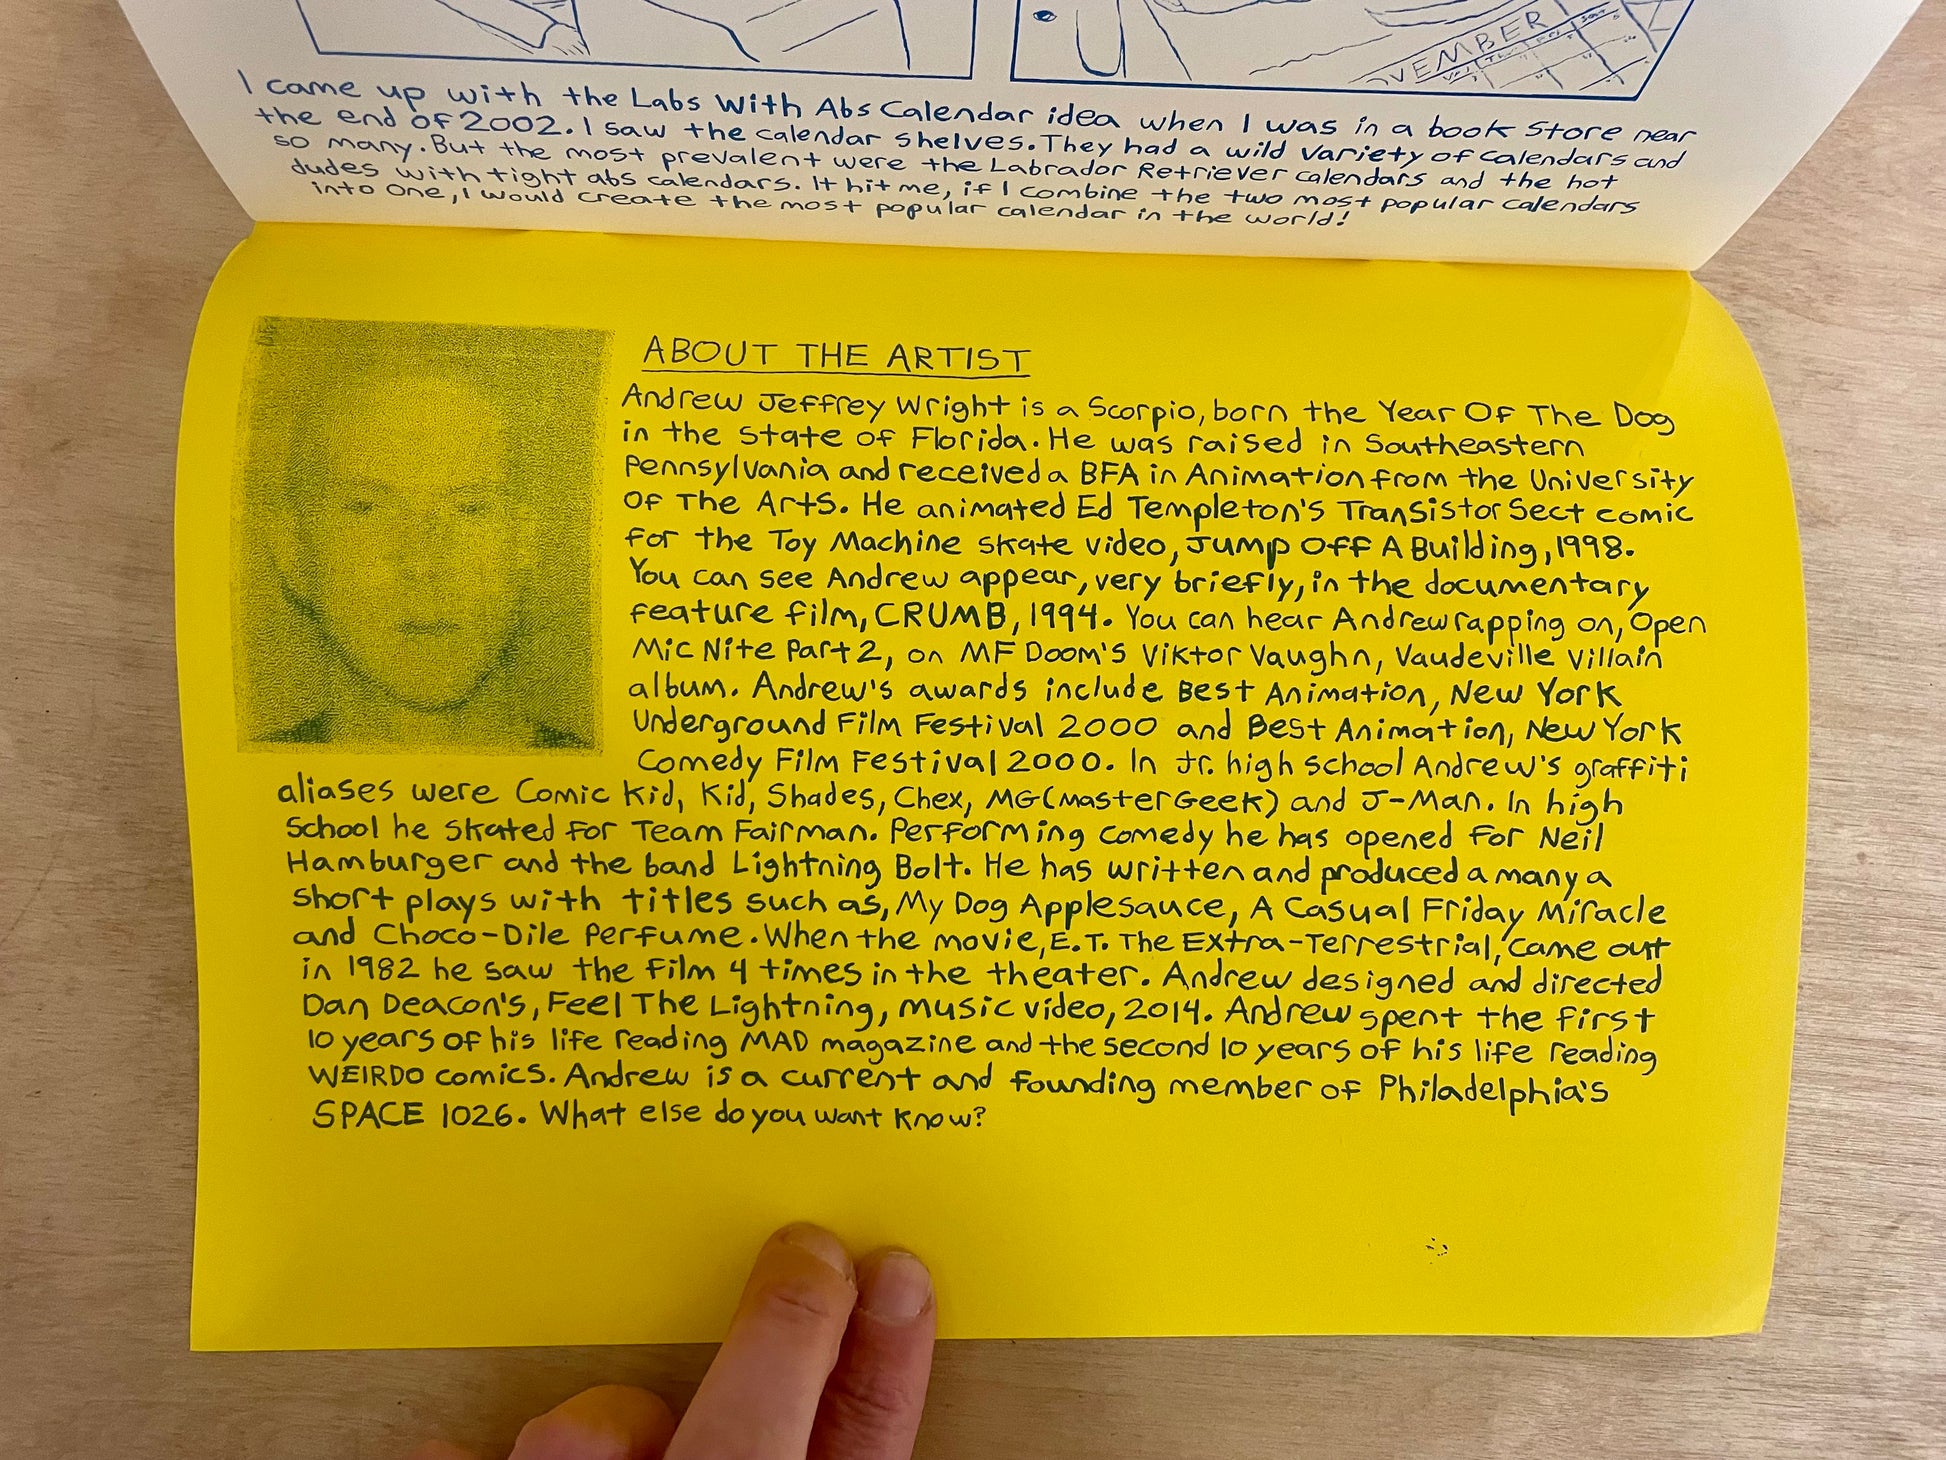 VEMBER
I came up with the Labs With Abs Calendar idea when I was in a book store near
the end of 2002. I saw the calendar shelves. They had a wild variety of calendars and
so many. But the most prevalent were the Labrador Retriever calendars and the hot
dudes with tight abs calendars. It hit me, if I combine the two most popular calendars
into one, I would create the most popular calendar in the world!
ABOUT THE ARTIST
Andrew Jeffrey Wright is a Scorpio, born the Year Of The Dog
in the state of Florida. He was raised in Southeastern
Pennsylvania and received a BFA in Animation from the University
Of The Arts. He animated Ed Templeton's Transistor Sect comic
for the Toy Machine skate video, Jump Off A Building, 1998.
You can see Andrew appear, very briefly, in the documentary
feature film, CRUMB, 1994. You can hear Andrew rapping on, Open
Mic Nite Part 2, on MF Doom's Viktor Vaughn, Vaudeville Villain
album. Andrew's awards include Best Animation, New York
Underground Film Festival 2000 and Best Animation, New York
Comedy Film Festival 2000. In Jr. high school Andrew's graffiti
aliases were Comic Kid, Kid, Shades, Chex, MG(Master Geek) and J-Man. In high
school he skated for Team Fairman. Performing comedy he has opened for Neil
Hamburger and the band Lightning Bolt. He has written and produced a many a
short plays with titles such as, My Dog Applesauce, A Casual Friday Miracle
and Choco-Dile Perfume. When the movie, E.T. The Extra-Terrestrial, came out
in 1982 he saw the film 4 times in the theater. Andrew designed and directed
Dan Deacon's, Feel The Lightning, music video, 2014. Andrew spent the first
10 years of his life reading MAD magazine and the second 10 years of his life reading
WEIRDO comics. Andrew is a current and founding member of Philadelphia's
SPACE 1026. What else do you want know?